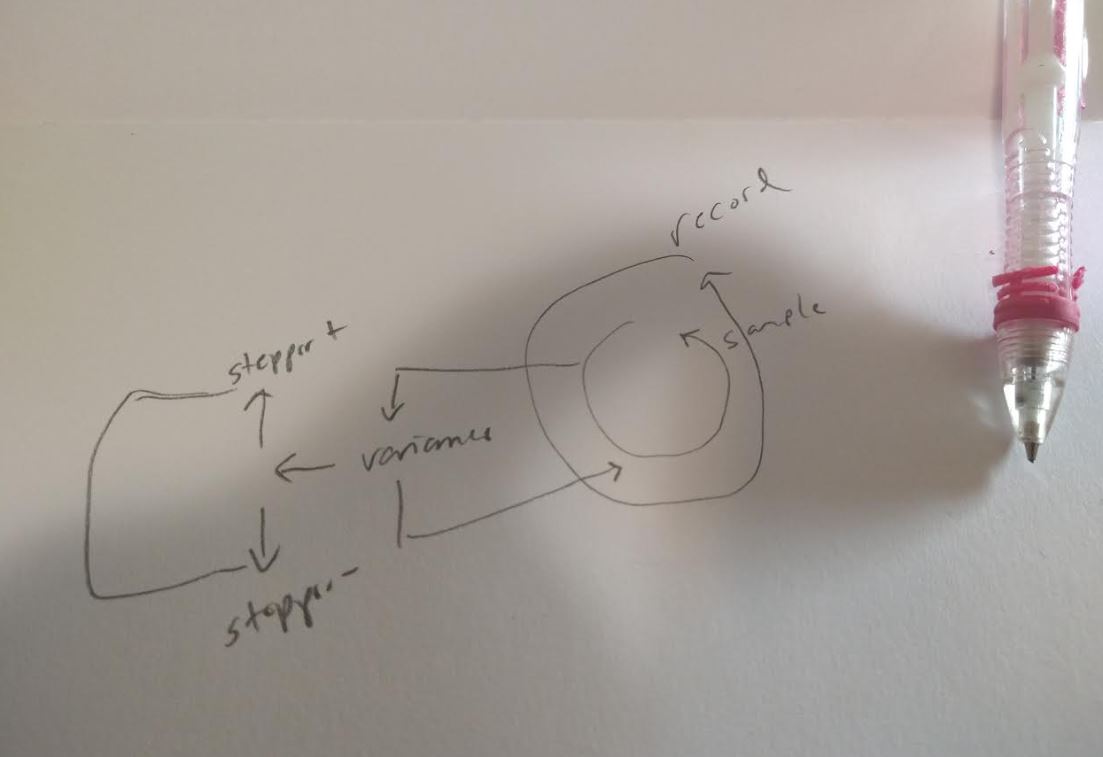 record
sample
stepper +
variance
stepper -